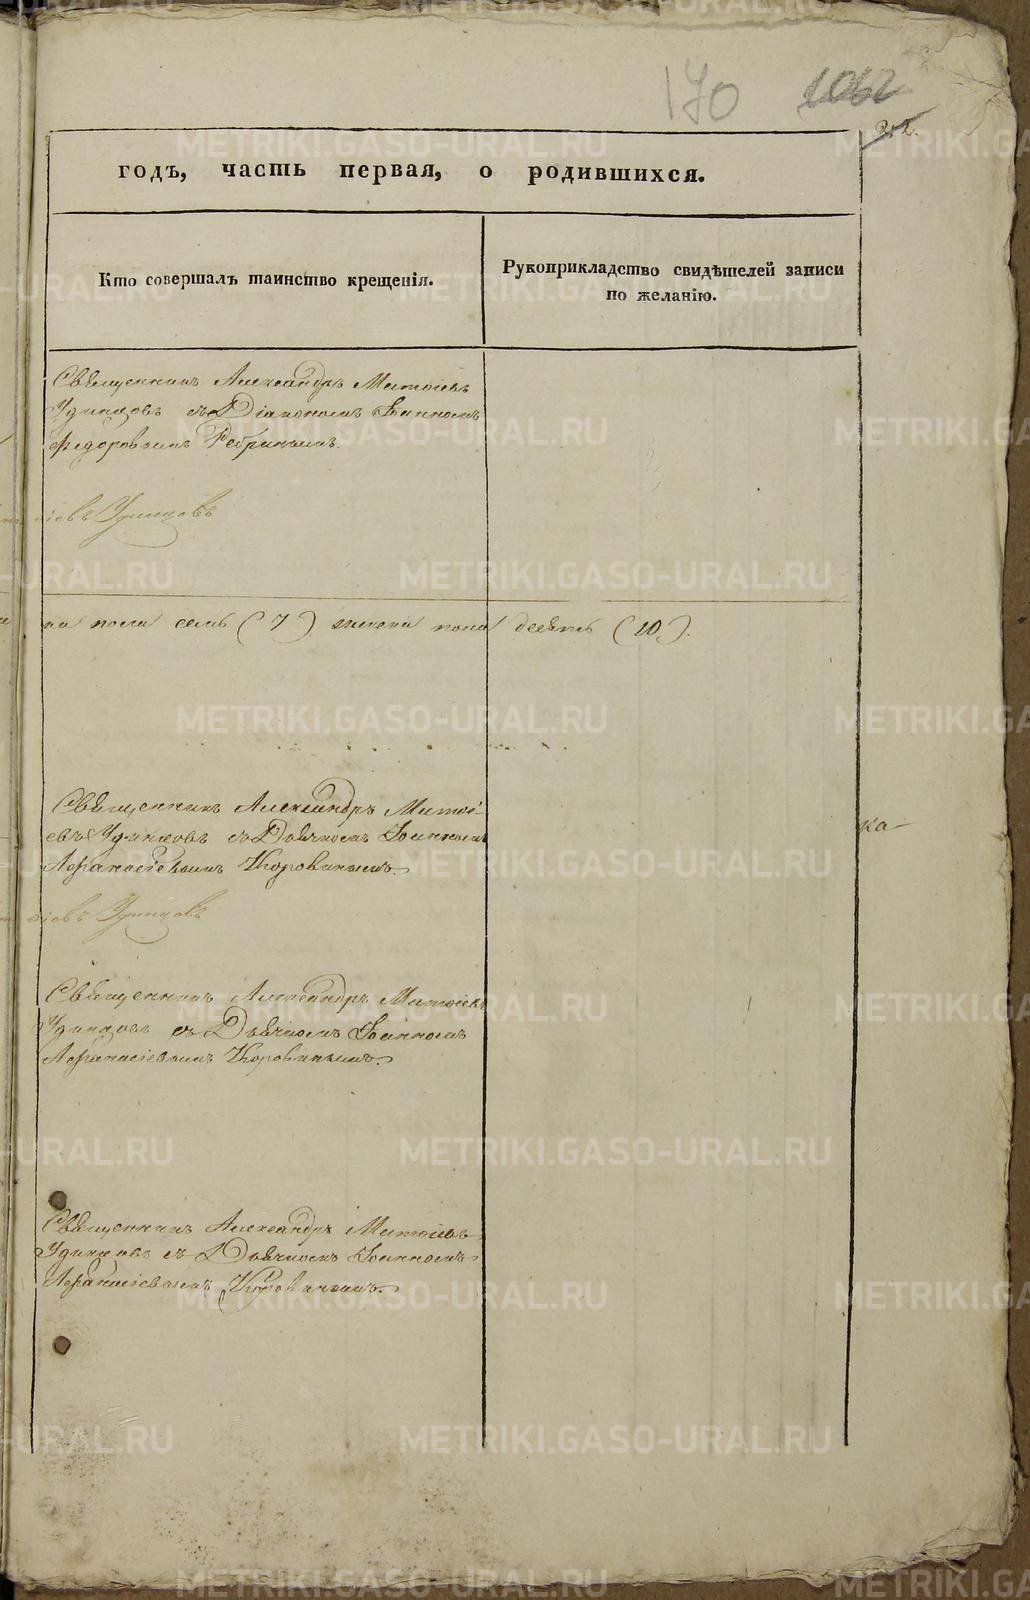 170
1062
212.
годъ, часть первая, о родившихся.
Кто совершалъ таинство крещенія.
Рукоприкладство свидѣтелей записи
по желанію.
Священникъ Александръ Матѳіевъ
Удинцовъ съ Діакономъ Іоанномъ
Ѳедоровымъ Ребринымъ.
іевъ Удинцовъ
ка пола семь (7) женска пола десять (10).
Священникъ Александръ Матѳі-
евъ Удинцовъ съ Дьячкомъ Іоанномъ
Аѳанасіевымъ Коровинымъ.
ка
іевъ Удинцовъ
Священникъ Александръ Матѳіевъ
Удинцовъ съ Дьячкомъ Іоанномъ
Аѳанасіевымъ Коровинымъ.
Священникъ Александръ Матѳіевъ
Удинцовъ съ Дьячкомъ Іоанномъ
Аѳанасіевымъ Коровинымъ.
METRIKI.GASO-URAL.RU